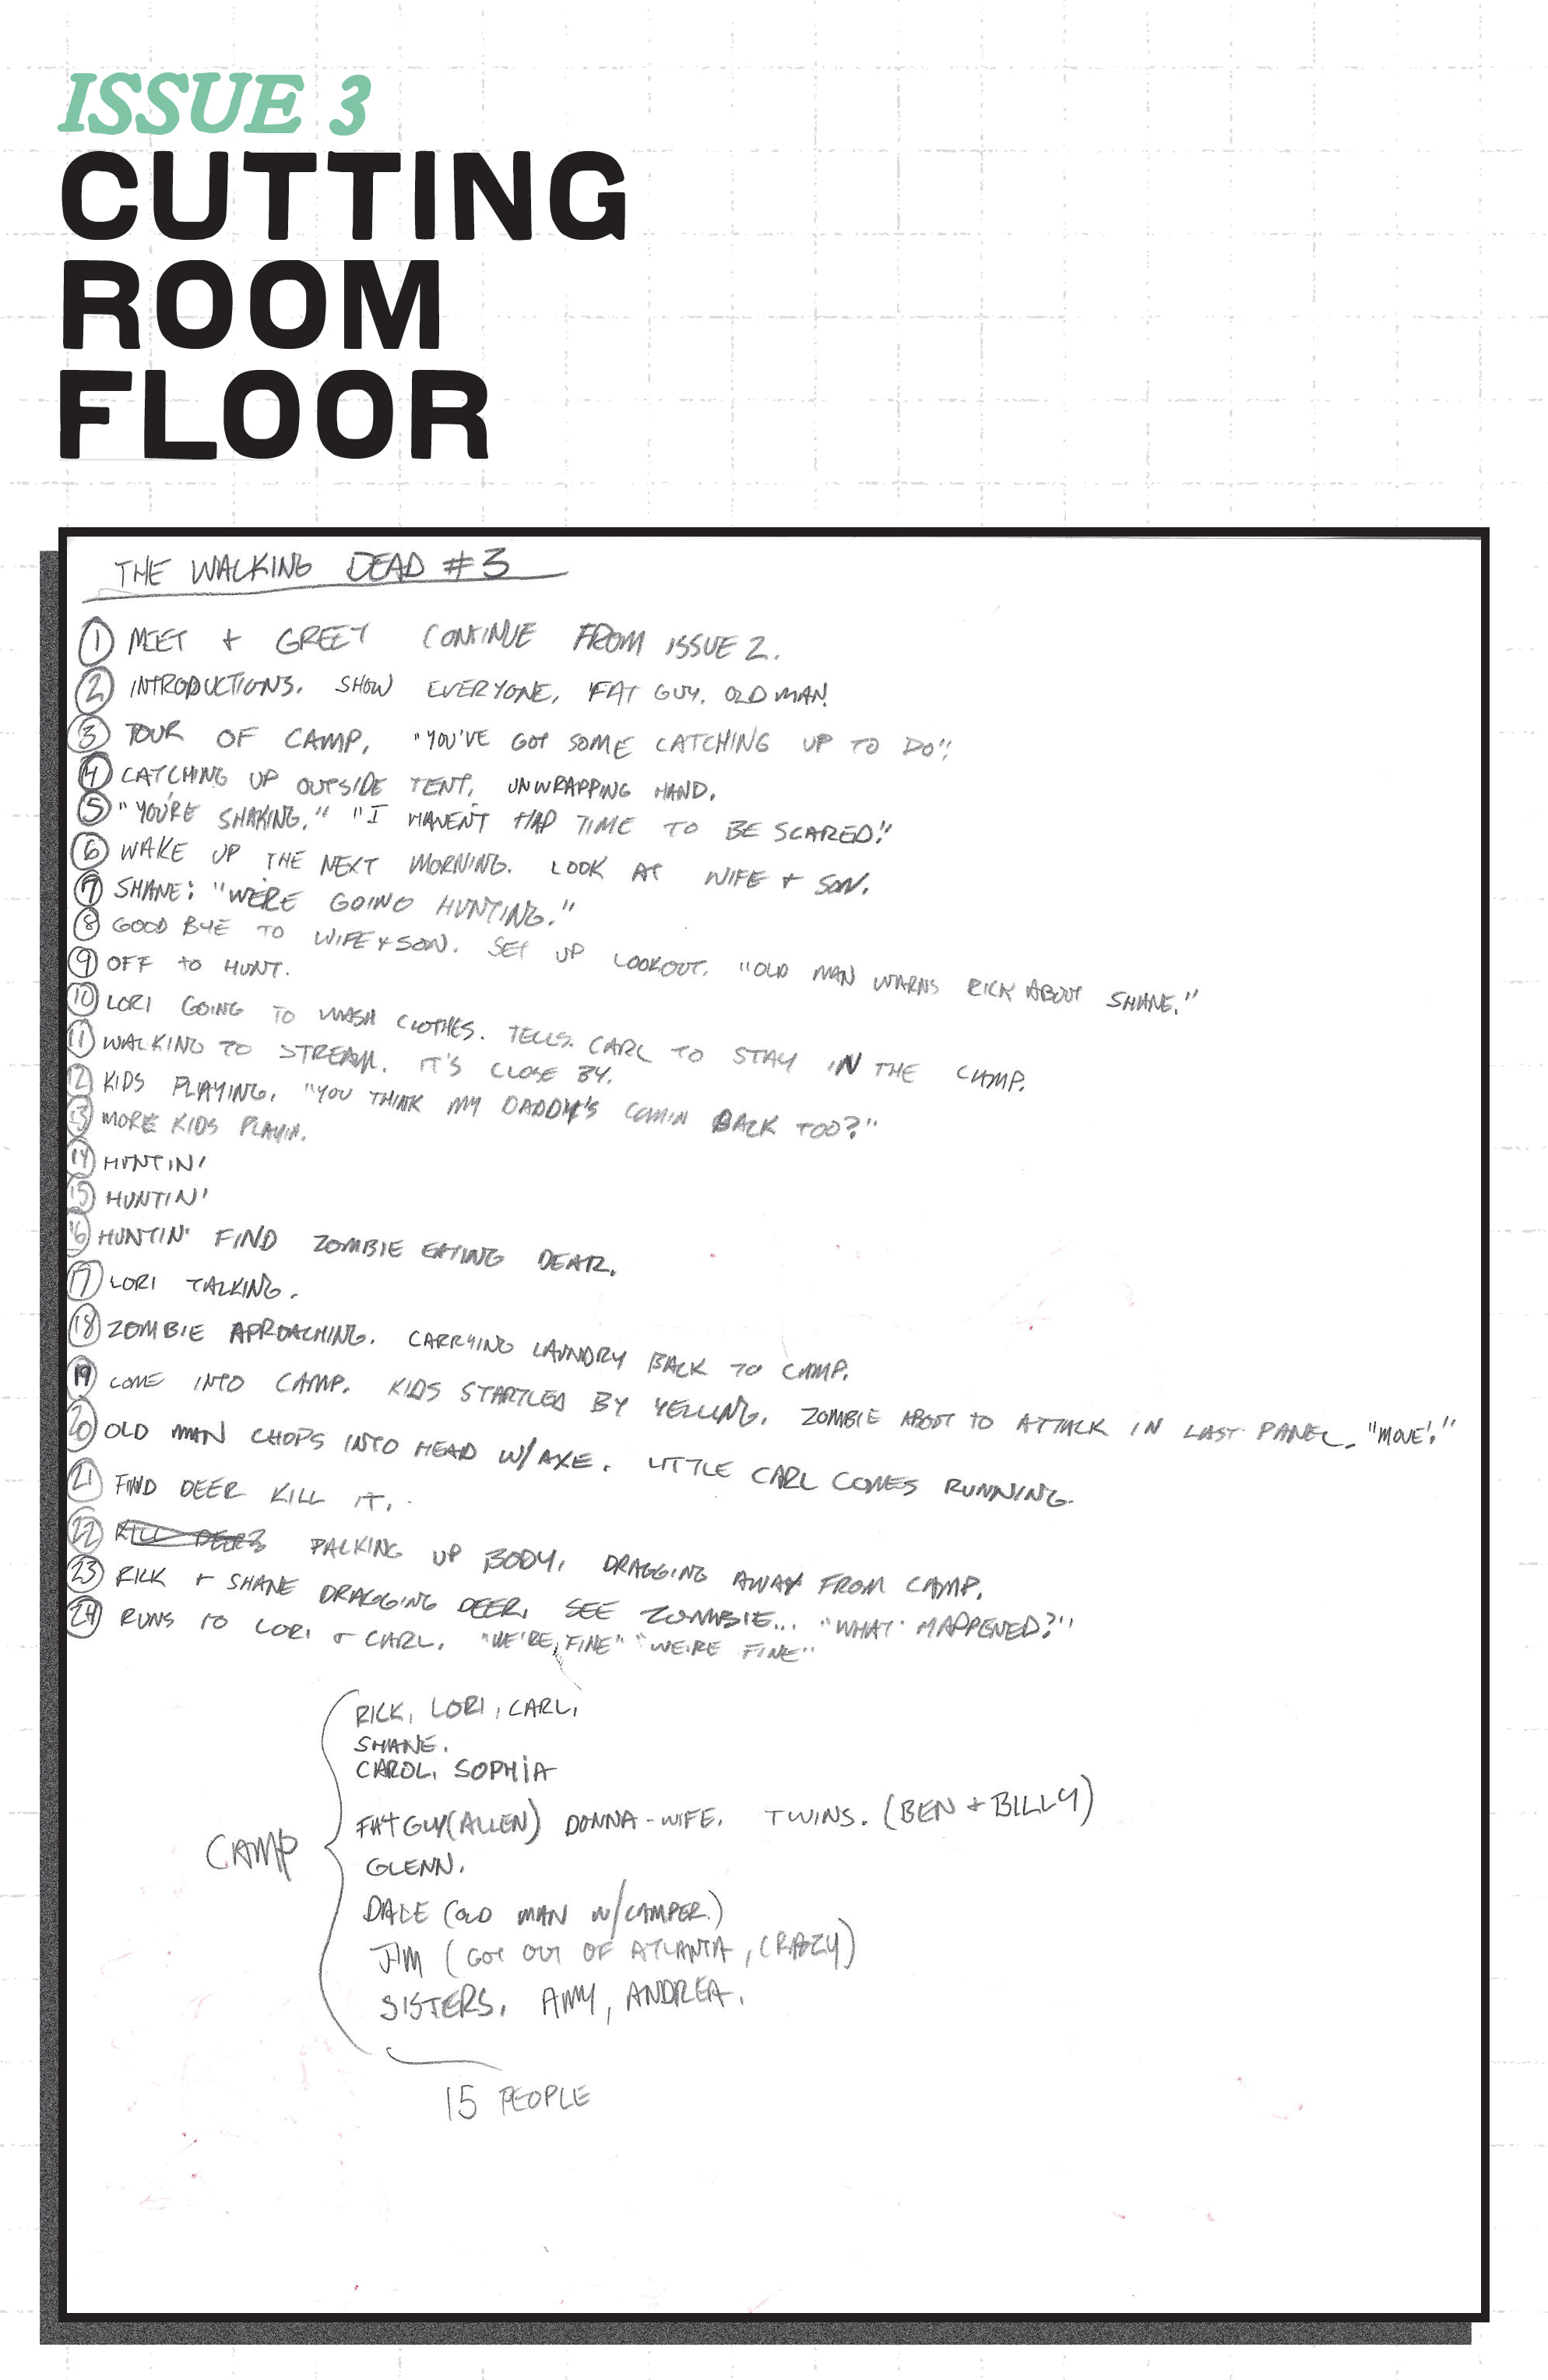 ISSUE 3
CUTTING
ROOM
FLOOR
THE WALKING DEAD #3
1 MEET + GREET CONTINUE FROM ISSUE 2.
2 INTRODUCTIONS. SHOW EVERYONE, FAT GUY. OLD MAN.
3 TOUR OF CAMP, "YOU'VE GOT SOME CATCHING UP TO DO".
4 CATCHING UP OUTSIDE TENT, UNWRAPPING HAND.
5 "YOU'RE SHAKING." "I HAVEN'T HAD TIME TO BE SCARED."
6 WAKE UP THE NEXT MORNING. LOOK AT WIFE + SON.
7 SHANE: "WE'RE GOING HUNTING."
8 GOOD BYE TO WIFE + SON. SET UP LOOKOUT. "OLD MAN WARNS RICK ABOUT SHANE."
9 OFF TO HUNT.
10 LORI GOING TO WASH CLOTHES. TELLS CARL TO STAY IN THE CAMP.
11 WALKING TO STREAM. IT'S CLOSE BY.
12 KIDS PLAYING, "YOU THINK MY DADDY'S COMIN BACK TOO?"
13 MORE KIDS PLAYIN.
14 HUNTIN'
15 HUNTIN'
16 HUNTIN' FIND ZOMBIE EATING DEAR.
17 LORI TALKING.
18 ZOMBIE APROACHING. CARRYING LAUNDRY BACK TO CAMP.
19 COME INTO CAMP. KIDS STARTLED BY YELLING. ZOMBIE ABOUT TO ATTACK IN LAST PANEL. "MOVE!"
20 OLD MAN CHOPS INTO HEAD W/AXE. LITTLE CARL COMES RUNNING.
21 FIND DEER KILL IT.
22 KILL DEER PACKING UP BODY, DRAGGING AWAY FROM CAMP.
23 RICK + SHANE DRAGGING DEER, SEE ZOMBIE... "WHAT HAPPENED?"
24 RUNS TO LORI + CARL. "WE'RE FINE" "WE'RE FINE"
CAMP
RICK, LORI, CARL,
SHANE.
CAROL, SOPHIA
FAT GUY (ALLEN) DONNA - WIFE. TWINS. (BEN + BILLY)
GLENN.
DALE (OLD MAN W/CAMPER.)
JIM (GOT OUT OF ATLANTA, CRAZY)
SISTERS. AMY, ANDREA.
15 PEOPLE